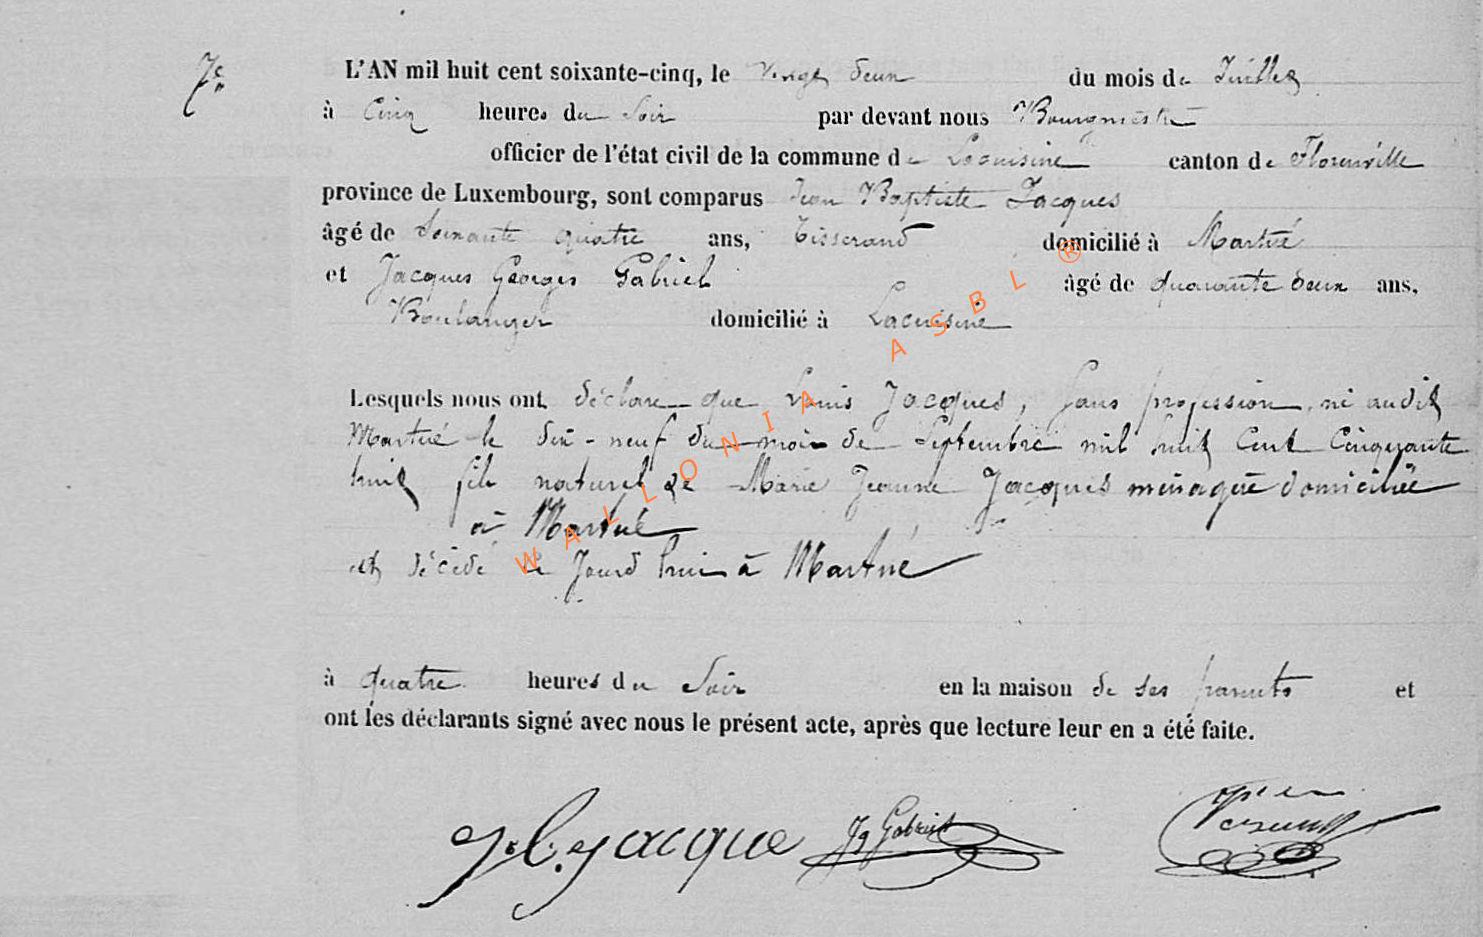 7e
L'AN mil huit cent soixante-cinq, le vingt deux du mois de Juillet
à cinq heures du soir par devant nous Bourgmestre
officier de l'état civil de la commune de Lacuisine canton de Florenville
province de Luxembourg, sont comparus Jean Baptiste Jacques
âgé de soixante quatre ans, tisserand domicilié à Martué
et Jacques Georges Gabriel âgé de quarante deux ans,
Boulanger domicilié à Lacuisine
Lesquels nous ont déclaré que Louis Jacques, sans profession, né audit
Martué le dix-neuf du mois de Septembre mil huit cent cinquante
huit fils naturel de Marie Jeanne Jacques ménagère domiciliée
à Martué
est décédé ce jourd'hui à Martué
à quatre heures du soir en la maison de ses parents et
ont les déclarants signé avec nous le présent acte, après que lecture leur en a été faite.
J.B. Jacque Jq Gabriel
WALLONIA ASBL ®